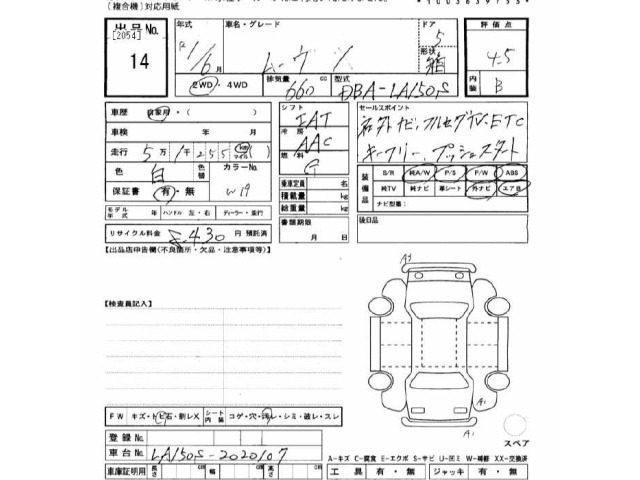 (複合機)対応用紙
出品No. 年式 車名・グレード ドア 評価点
[2054] 5 4.5
14 R1/6月 ムーヴ 形状 箱
2WD・4WD 排気量 cc 型式 内装 B
660 DBA-LA150S
車歴 自家用・( ) シフト セールスポイント
車検 年 月 FAT 社外ナビ、フルセグTV、ETC
冷房 AAC キーフリー、プッシュスタート
走行 5万1千255 km マイル 燃料 G
色 白 色替 カラーNo. W19
保証書 有・無 乗車定員 名 装備品 S/R 純A/W P/S P/W ABS
積載量 kg 純TV 純ナビ 革シート 外ナビ エアB
総重量 kg ナビ型番:
モデル年式 年 ハンドル 左・右 ディーラー・並行 書類期限 後日品
リサイクル料金 6430 円 預託済 月 日
【出品店申告欄(不良箇所・欠品・注意事項等)】
A3
【検査員記入】
A1
FW キズ・トビ石・割レX シート内装 コゲ・穴・汚レ・シミ・破レ・スレ
登録No. A1 スペア
車台No. LA150S-2020107
A-キズ C-腐食 E-エクボ S-サビ U-凹ミ W-補修 XX-交換済
車庫証明用 長さ cm 幅 cm 高さ cm 工具 有・無 ジャッキ 有・無